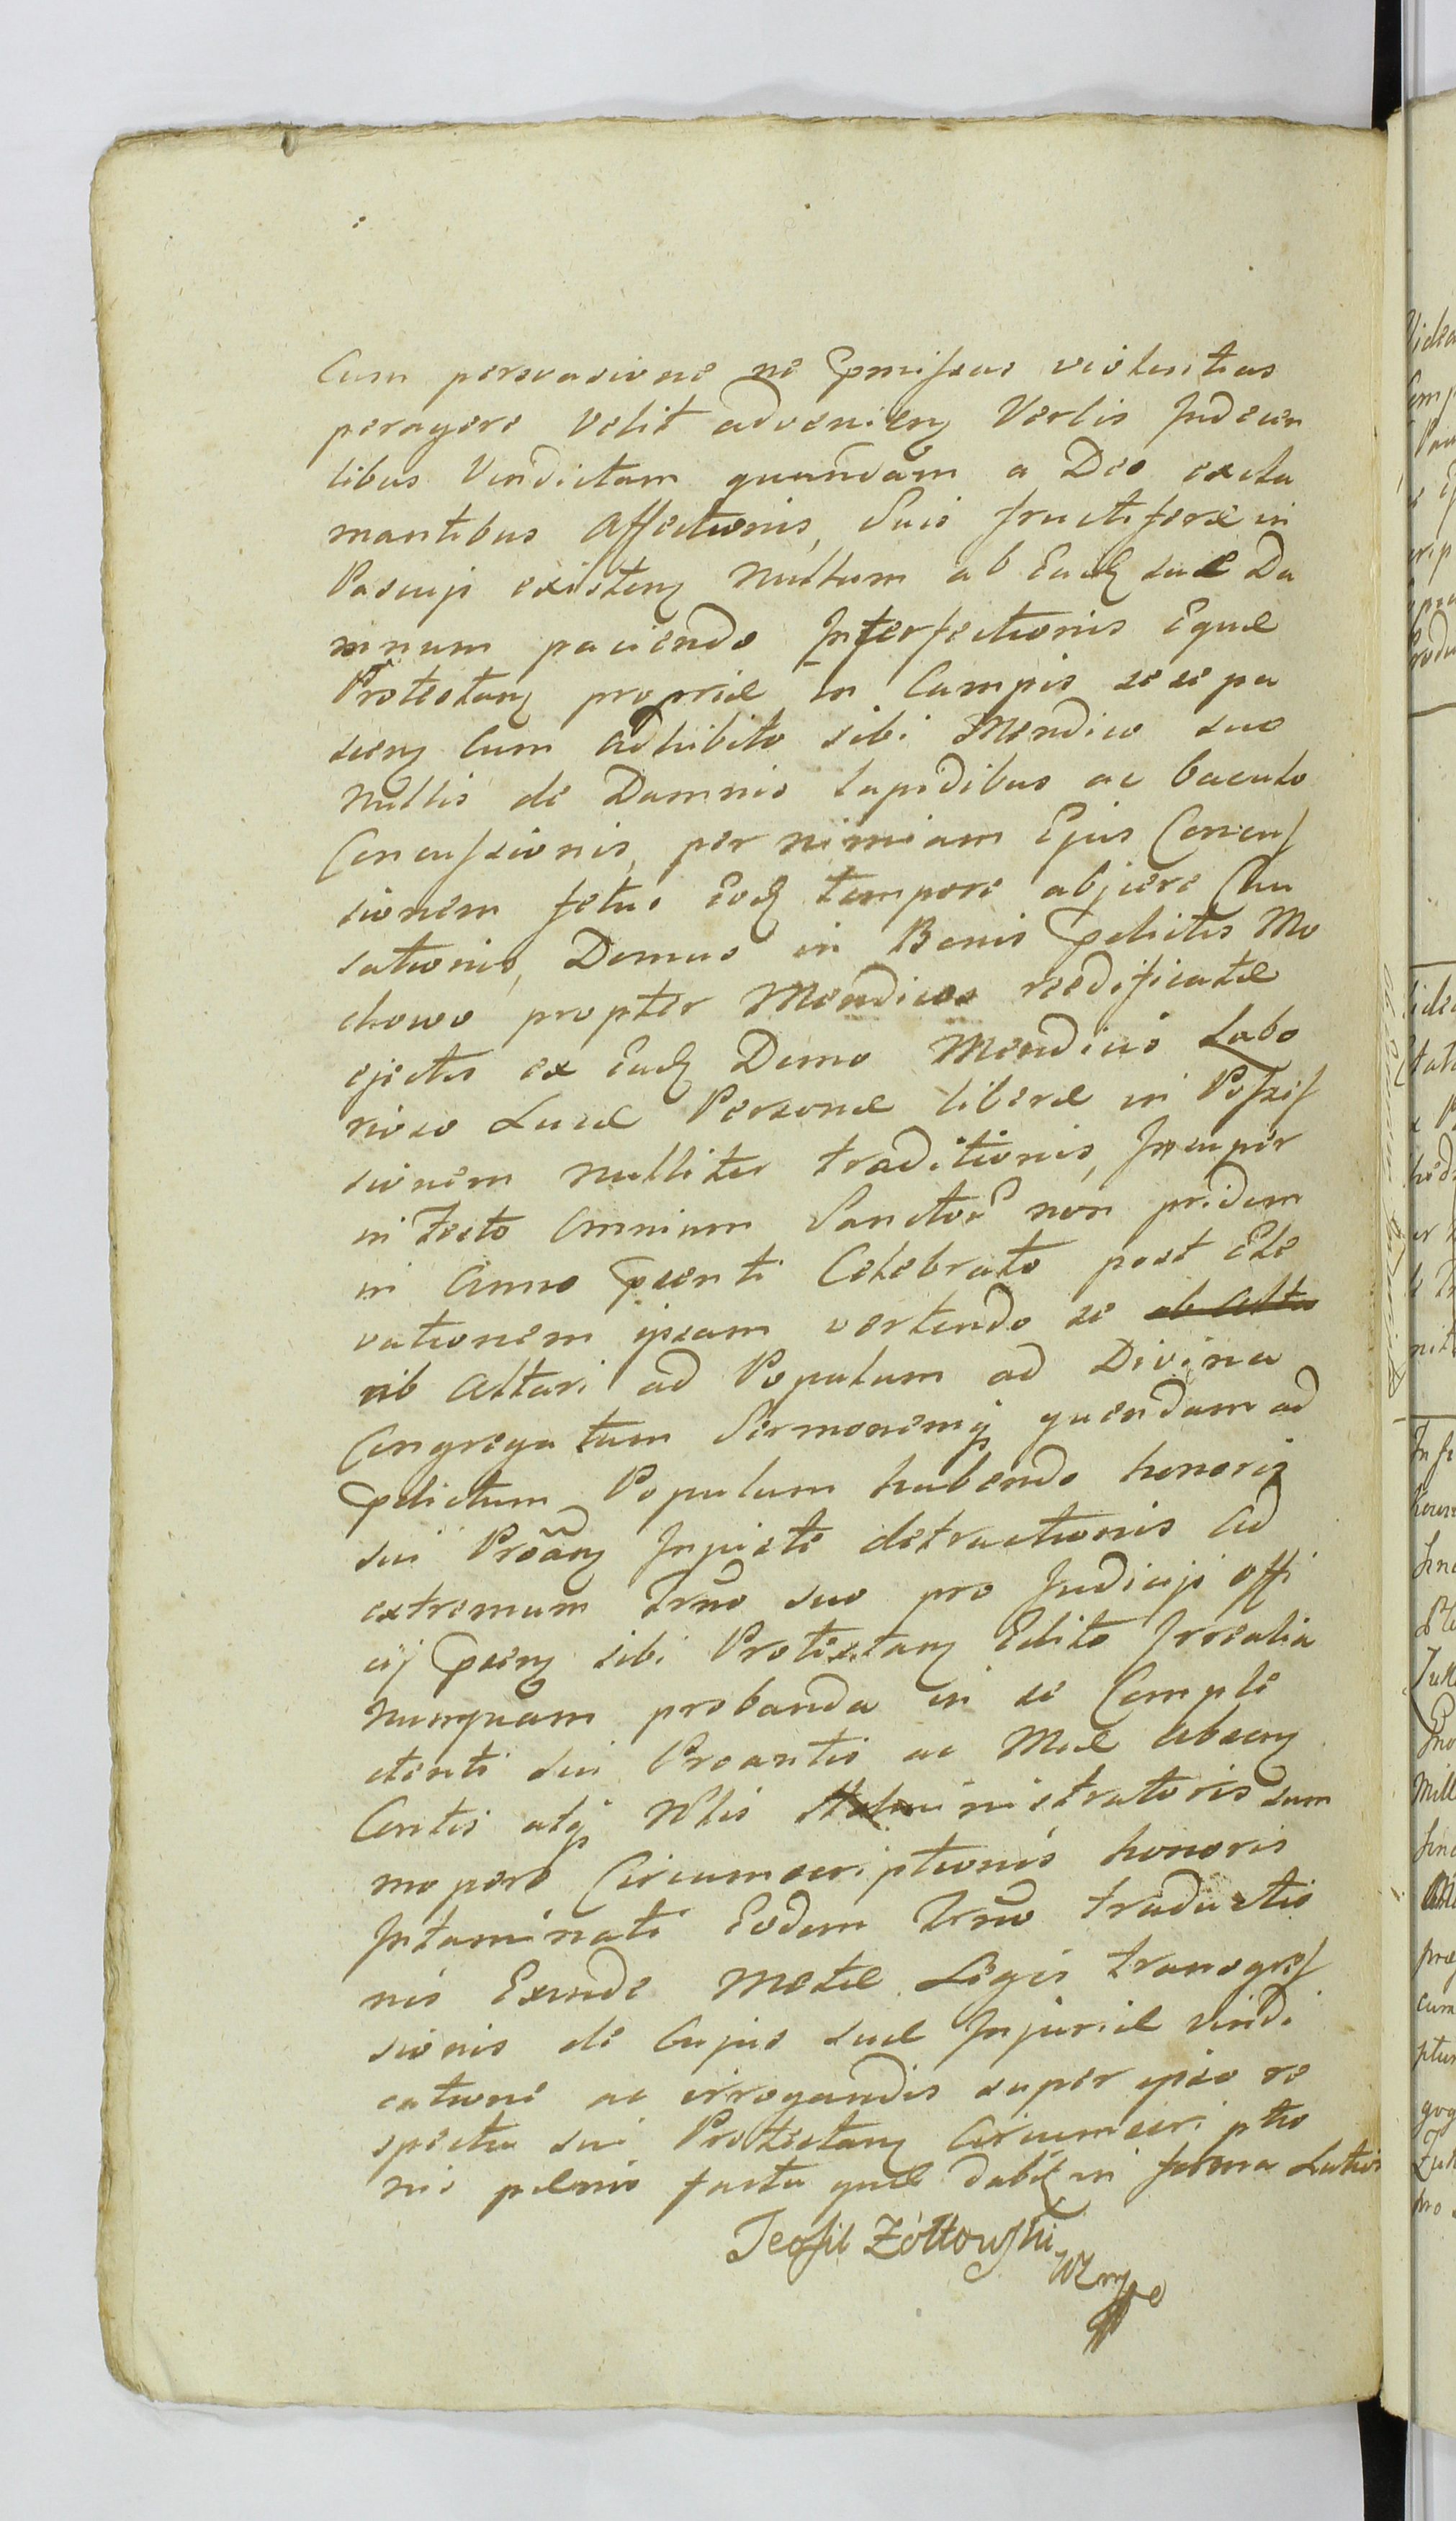 Cum persvasione ne Ipmissas violentias
peragere velit advenien Verbis Indecen
tibus Vindictam quandam a Deo excla
mantibus Affectionis, Suis fructiferæ in
Pascuji existen Nullum ab Ead suæ Da
mnum paciendo Interfectionis Equæ
Protestan propriæ in Campis sese pa
scen Cum adhibito sibi Mendico suo
Nullis de Damnis lapidibus ac baculo
Concussionis, per nimiam Ejus Concus
sionem fetus Eod tempore abjicere Cau
sationis, Domus in Bonis pdictis Mo
chowo propter Mendicos reedificatæ
ejectis ex Ead Domo Mendicis Labo
rioso Lucæ Personæ liberæ in Posses
sionem nulliter traditionis, Insuper
in Festo Omnium Sanctor non pridem
in Anno psenti Celebrato post Ele
vationem ipsam vertendo se ab Alta
ab Altari ad Populum ad Divina
Congregatum Sermonemq quendam ad
pdictum Populum habendo honoris
sui Proan Injuste detractionis Ad
extremum Trno suo pro Judicji Offi
cij psen sibi Protestan Edito Irrealia
Nunquam probanda in se Comple
ctenti sui Proantis ac Meæ Absen
Contis atq Nlis Administratoris sum
mopere Circumscriptionis honoris
Intaminati Eodem Trno traductio
nis Exinde Metæ Legis transgres
sionis de Cujus suæ Injuriæ vindi
catione ac irrogandis super ipso re
spectu sui Protestan Circumscriptio
nis pænis facta quæ dabit in forma Latiori
Teofil Zółtowski